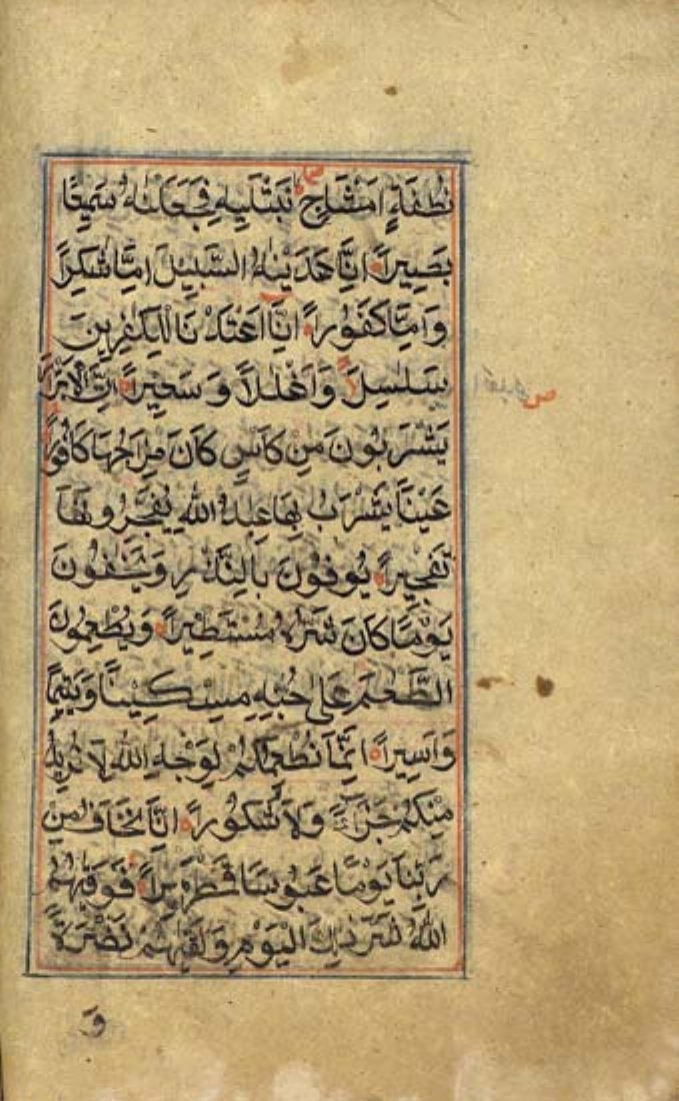 نُطْفَةٍ اَمْشَاجٍ نَبْتَلِيهِ فَجَعَلْنٰهُ سَمِيعًا
بَصِيرًا اِنَّا هَدَيْنٰهُ السَّبِيلَ اِمَّا شَاكِرًا
وَاِمَّا كَفُورًا اِنَّا اَعْتَدْنَا لِلْكٰفِرِينَ
سَلٰسِلَا وَاَغْلٰلًا وَسَعِيرًا اِنَّ الْاَبْرَارَ
يَشْرَبُونَ مِنْ كَاْسٍ كَانَ مِزَاجُهَا كَافُورًا
عَيْنًا يَشْرَبُ بِهَا عِبَادُ اللّٰهِ يُفَجِّرُونَهَا
تَفْجِيرًا يُوفُونَ بِالنَّذْرِ وَيَخَافُونَ
يَوْمًا كَانَ شَرُّهُ مُسْتَطِيرًا وَيُطْعِمُونَ
الطَّعٰمَ عَلٰى حُبِّهِ مِسْكِينًا وَيَتِيمًا
وَاَسِيرًا اِنَّمَا نُطْعِمُكُمْ لِوَجْهِ اللّٰهِ لَا نُرِيدُ
مِنْكُمْ جَزَاءً وَلَا شُكُورًا اِنَّا نَخَافُ مِنْ
رَبِّنَا يَوْمًا عَبُوسًا قَمْطَرِيرًا فَوَقٰهُمُ
اللّٰهُ شَرَّ ذٰلِكَ الْيَوْمِ وَلَقّٰهُمْ نَضْرَةً
وَ